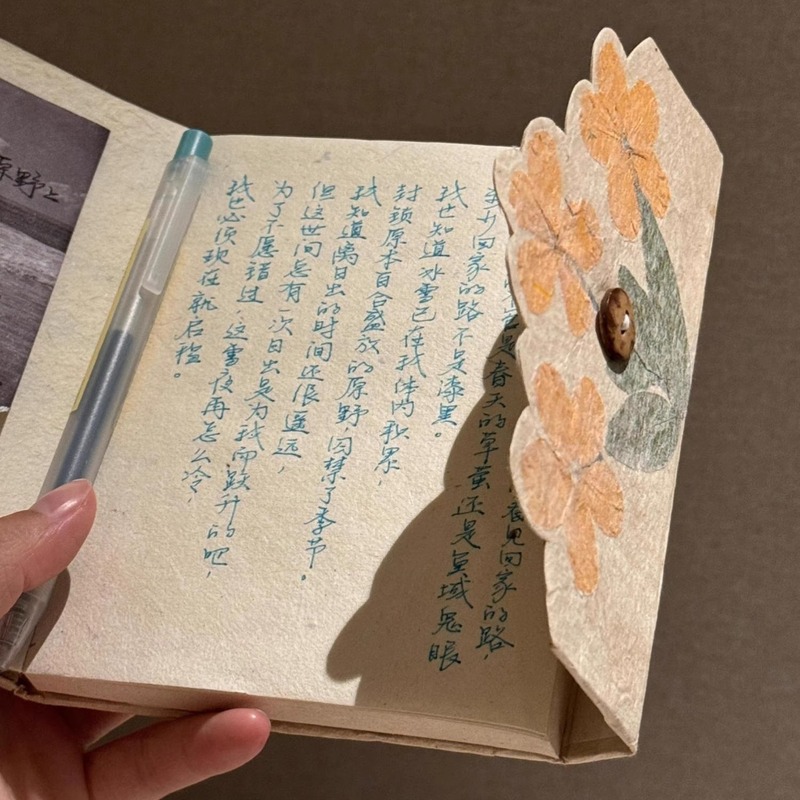 原野上
见回家的路，
是春天的草萤还是鬼域鬼眼
少回家的路不是漆黑。
我也知道冰雪已在我体内积累，
封锁原本百合盛放的原野，囚禁了季节。
我知道离日出的时间还很遥远，
但这世间总有一次日出是为我而跃升的吧，
为了不愿错过 这雪夜再怎么冷，
我也必须现在就启程。